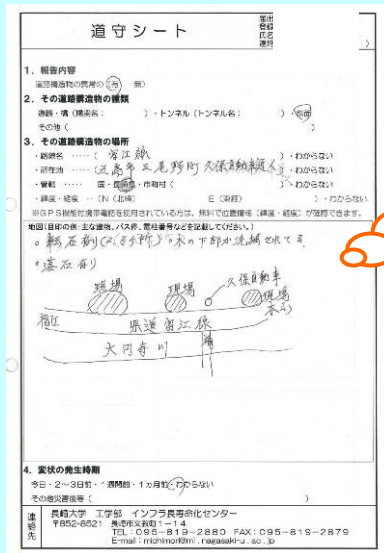 道守シート
届出
登録
氏名
連絡
1．報告内容
道路構造物の異常の（有　無）
2．その道路構造物の種類
道路・橋（橋梁名：　　　）・トンネル（トンネル名：　　　）・
その他（　　　）
3．その道路構造物の場所
・路線名 ‥‥（ 富江線　　　）・わからない
・所在地 ‥‥（五島市三尾野町久保自動車　　　）・わからない
・管轄 ‥‥ 国・長崎県・市町村（　　　）・わからない
・緯度・経度 ‥（N（北緯）　　　E（東経）　　　）・わからない
※GPS機能付携帯電話を使用されている方は、無料で位置情報（緯度・経度）が確認できます。
地図(目印の例:主な建物、バス停、電柱番号などを記載してください。)
。転石有り　木の下部が洗掘されてる
。落石有り
現場　現場　久保自動車
現場
福江　県道富江線
大円寺川　橋
4．変状の発生時期
今日・2～3日前・1週間前・1ヵ月前・わからない
その他災害後等（　　　）
連絡先
長崎大学　工学部　インフラ長寿命化センター
〒852-8521　長崎市文教町1－14
TEL:095－819－2880　FAX:095－819－2879
E-mail : michimori@ml.nagasaki-u.ac.jp